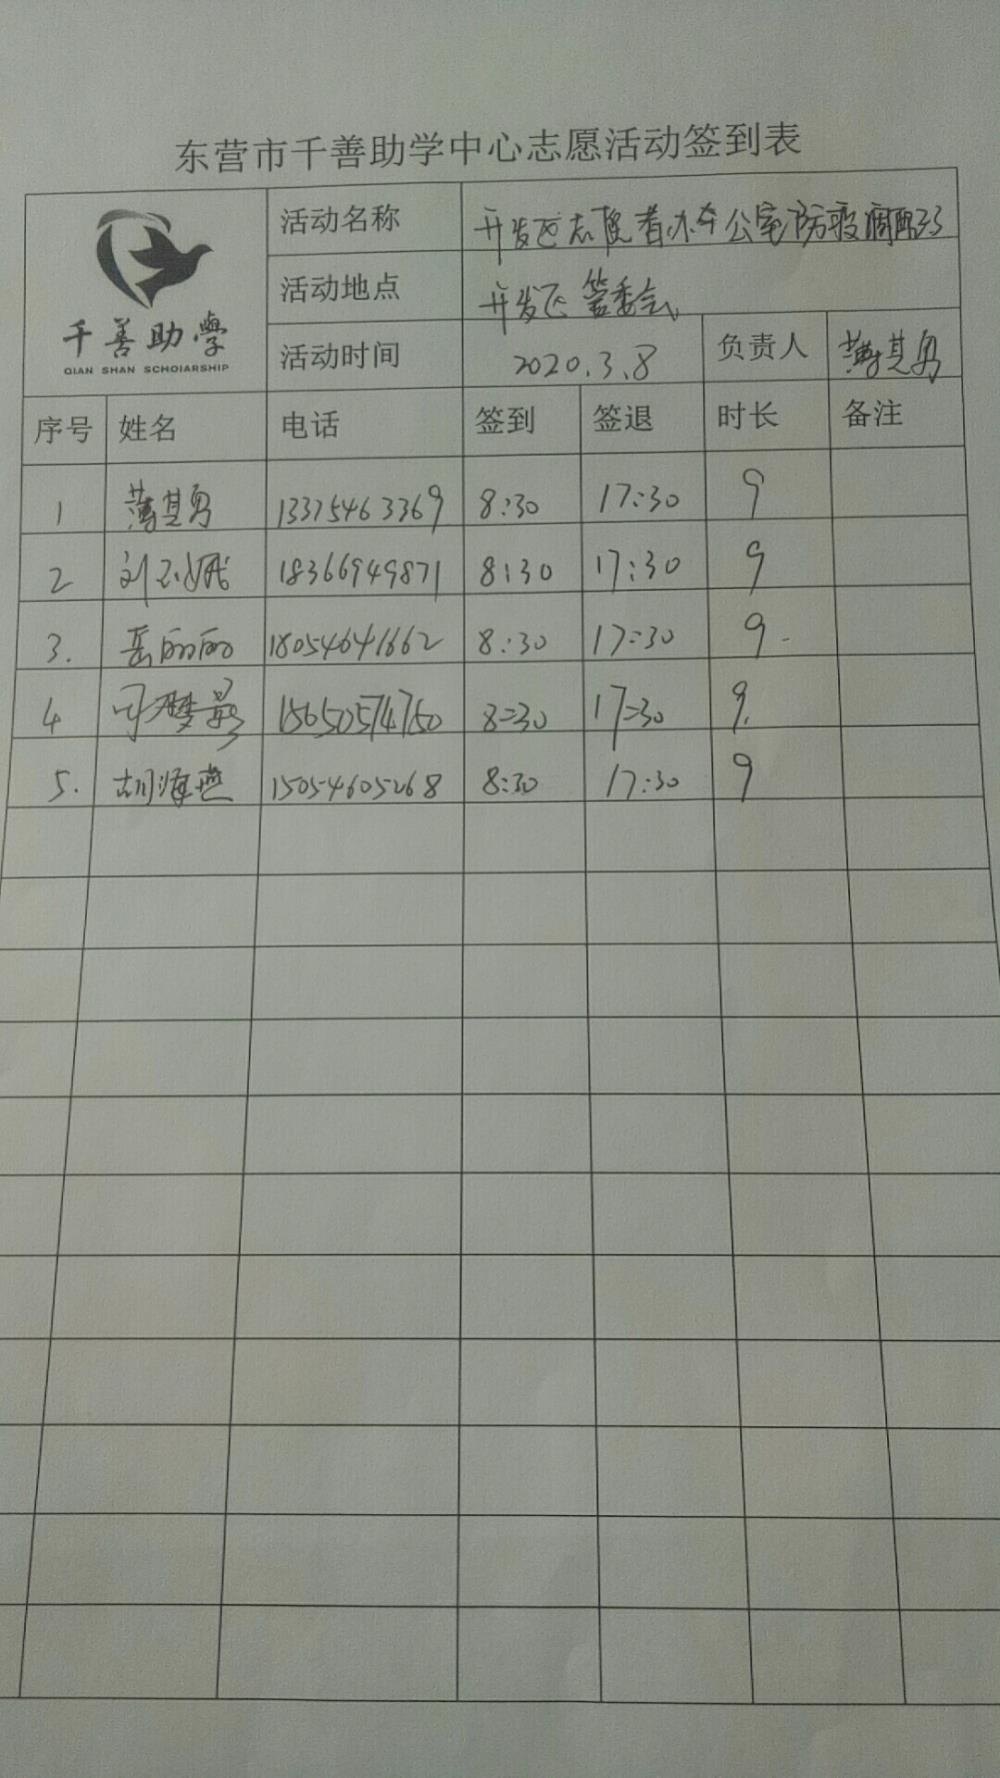 东营市千善助学中心志愿活动签到表
千善助學
QIAN SHAN SCHOIARSHIP
活动名称 开发区志愿者办公室防疫
活动地点 开发区管委会
活动时间 2020.3.8 负责人 薄其勇
序号 姓名 电话 签到 签退 时长 备注
1 薄其勇 13375463369 8:30 17:30 9
2 刘 18366949871 8:30 17:30 9
3. 岳丽丽 18054641662 8:30 17:30 9
4 15650574750 8:30 17:30 9.
5. 胡海燕 15054605268 8:30 17:30 9